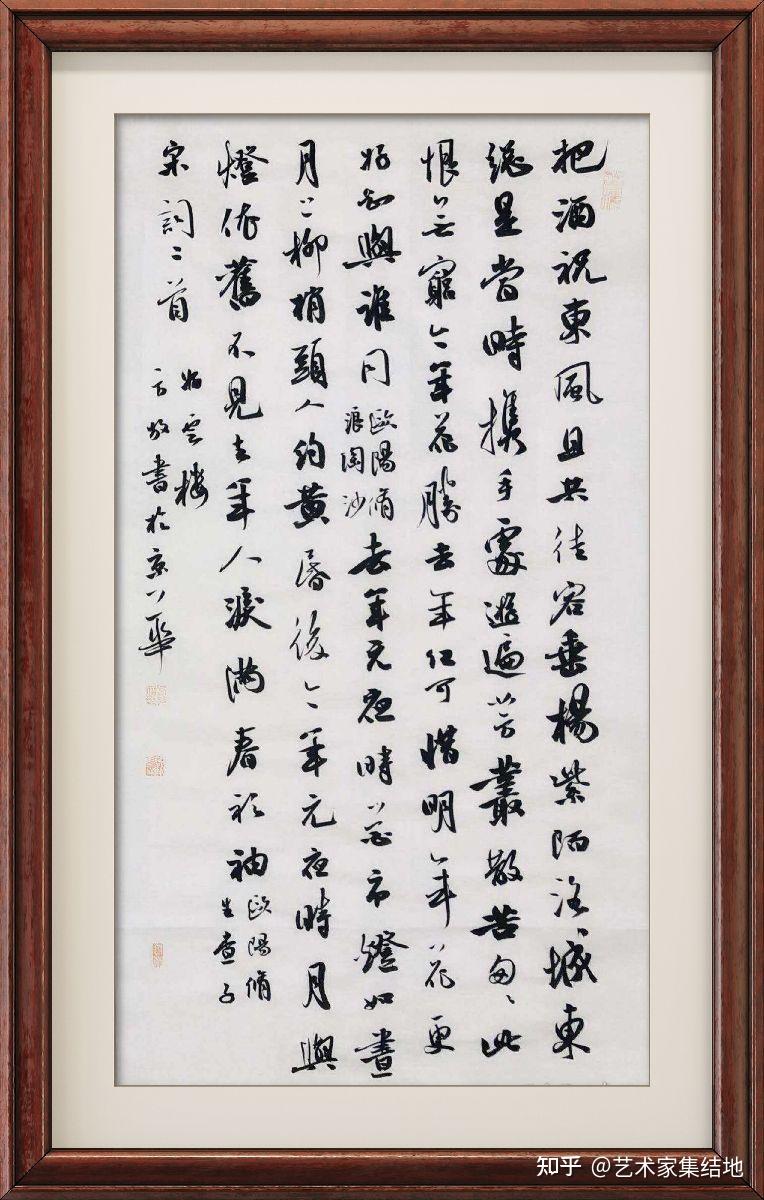 把酒祝東風且共從容垂楊紫陌洛城東
總是當時携手處遊遍芳叢散苦匆匆此
恨無窮今年花勝去年紅可惜明年花更
好知與誰同
歐陽脩
浪淘沙
去年元夜時花市燈如晝
月上柳梢頭人約黃昏後今年元夜時月與
燈依舊不見去年人淚滿春衫袖
歐陽脩
生查子
宋詞二首
雲樓
書於京華
知乎 @艺术家集结地